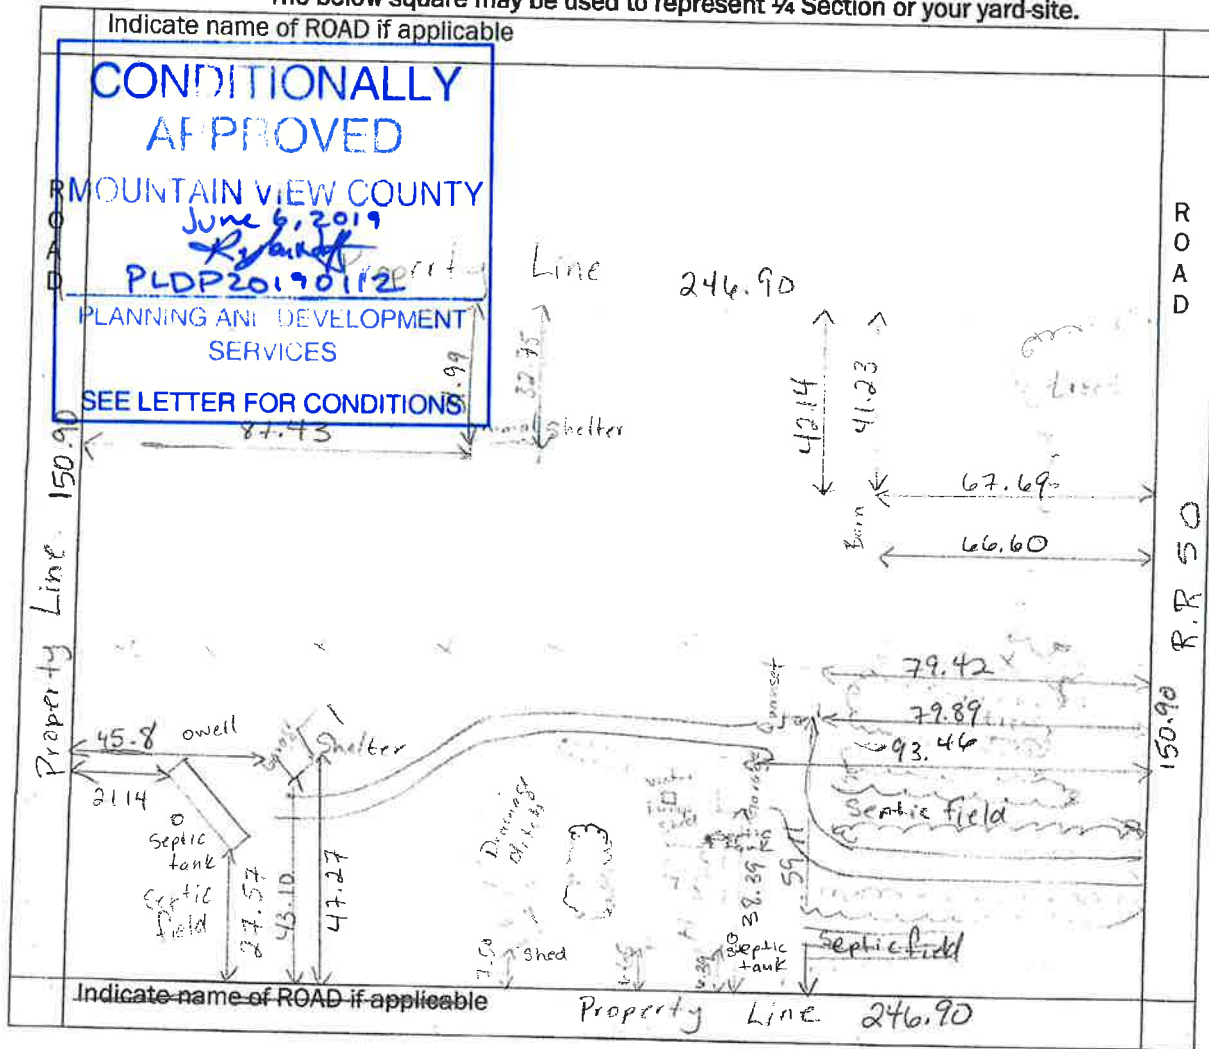 The below square may be used to represent ¼ Section or your yard-site.
Indicate name of ROAD if applicable
CONDITIONALLY
APPROVED
MOUNTAIN VIEW COUNTY
June 6, 2019
PLDP20190112
PLANNING AND DEVELOPMENT
SERVICES
SEE LETTER FOR CONDITIONS
ROAD
ROAD
Property Line 246.90
.99
32.75
42.14
41.23
87.43
Animal Shelter
67.69
Barn
66.60
Property Line 150.90
R.R 50
150.90
79.42
79.89
93.46
Quonset
45.8
well
Shelter
21.14
Septic
tank
Septic
field
27.57
43.10
47.27
Drainage
Garage
38.39
59.11
Septic field
7.50
Shed
Septic
tank
Septic field
Indicate name of ROAD if applicable
Property Line 246.90